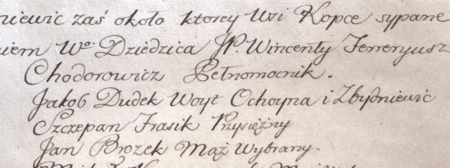 niewic zaś około ktorey Wsi Kopce sypane
niem Wo. Dziedzica JP. Wincenty Ferreryusz
Chodorowicz Pełnomocnik.
Jakob Dudek Woyt Ochoyna i Zbydniewic
Szczepan Frasik Przysiężny
Jan Brozek Mąż Wybrany.